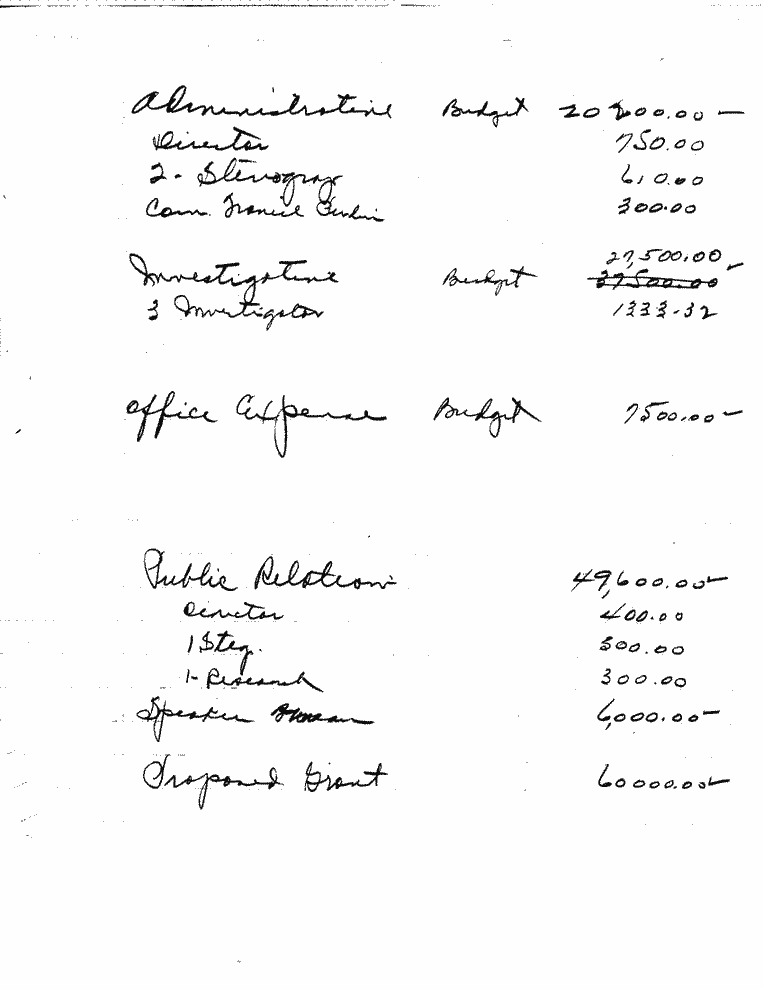 Administrative Budget 20800.00 —
Director 750.00
2 - Stenograp 610.00
Com. 300.00
27,500.00 –
Investigative Budget 37500.00
3 Investigator 1333-32
Office Expense Budget 7500.00 –
Public Relations 49,600.00 –
Director 400.00
1 Steg. 300.00
1- Research 300.00
Speaker Bureau 6,000.00 –
Proposed Grant 60000.00 –